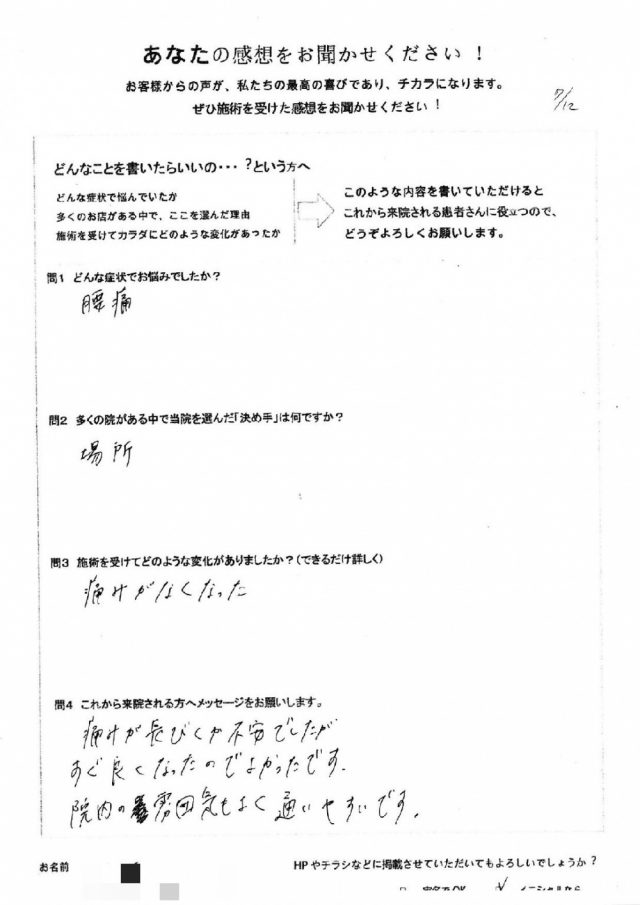 あなたの感想をお聞かせください！
お客様からの声が、私たちの最高の喜びであり、チカラになります。
ぜひ施術を受けた感想をお聞かせください！
7/12
どんなことを書いたらいいの・・・？という方へ
どんな症状で悩んでいたか
多くのお店がある中で、ここを選んだ理由
施術を受けてカラダにどのような変化があったか
このような内容を書いていただけると
これから来院される患者さんに役立つので、
どうぞよろしくお願いします。
問1 どんな症状でお悩みでしたか？
腰痛
問2 多くの院がある中で当院を選んだ「決め手」は何ですか？
場所
問3 施術を受けてどのような変化がありましたか？（できるだけ詳しく）
痛みがなくなった
問4 これから来院される方へメッセージをお願いします。
痛みが長びくか不安でしたが
すぐ良くなったのでよかったです.
院内の雰囲気もよく通いやすいです.
お名前
HPやチラシなどに掲載させていただいてもよろしいでしょうか？